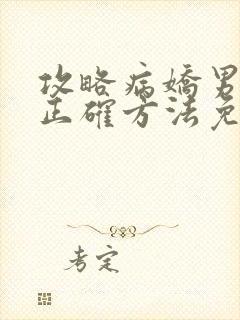 攻略病嬌男
正確方法免
考定